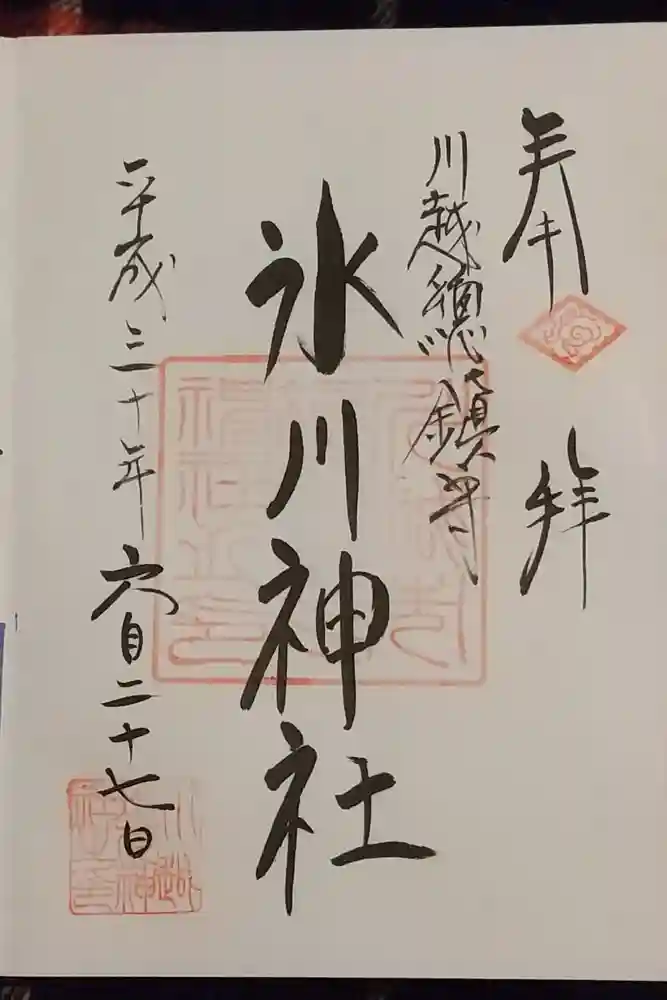 奉拝
川越総鎮守
氷川神社
平成三十年六月二十七日